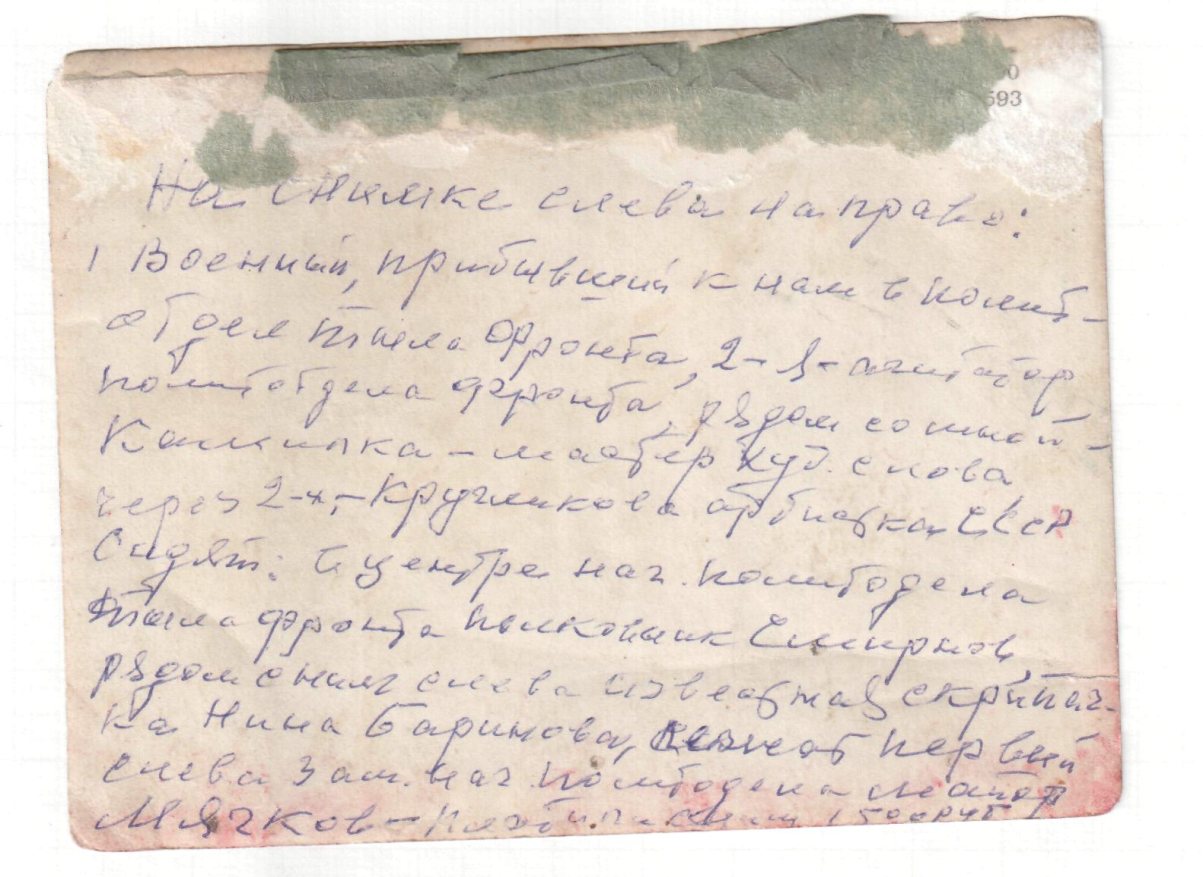 0
593
На снимке слева направо:
1 Военный, прибывший к нам в полит-
отдел тыла фронта, 2-я-агитатор
политотдела фронта, рядом со мной-
Камилка-мастер худ. слова
через 2-х,-Кругликова артистка
Сидят: в центре нач. политодела
тыла фронта полковник Смирнов,
рядом с ним слева известная скрипач-
ка Нина Баринова, лежат первый
слева зам. нач. политодела майор
Мячков-